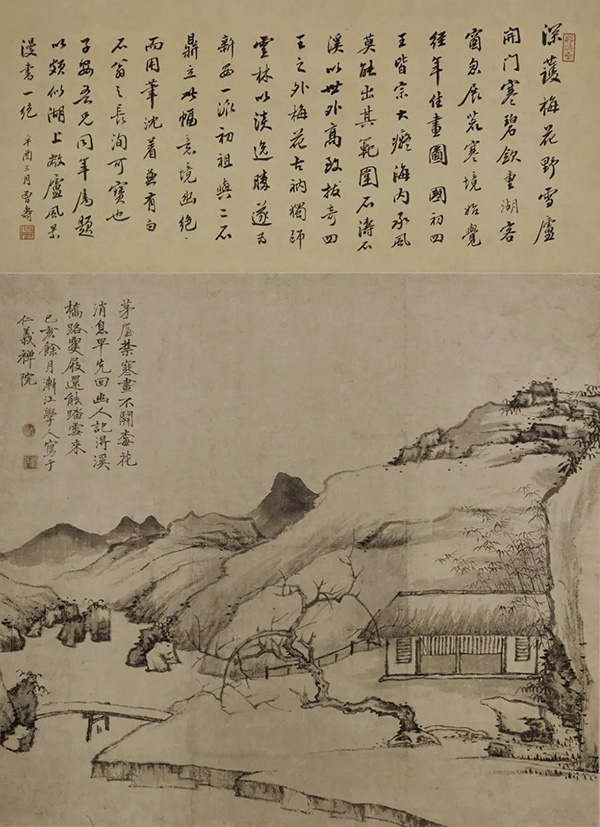 深護梅花野雪廬
開門寒碧飲重湖客
窗忽展荒寒境始覺
經年佳畫圖 國初四
王皆宗大癡海内承風
莫能出其範圍石濤石
溪以世外高致拔奇四
王之外梅花古衲獨師
雲林以淡逸勝遂爲
新安一派初祖與二石
鼎立此幅意境幽絕
而用筆沈着兼有白
石翁之長洵可寶也
子安吾兄同年屬題
以頗似湖上敝廬風景
漫書一絕 辛酉三月曾壽
茅屋禁寒晝不開梅花
消息早先回幽人記得溪
橋路雙屐還能踏雪來
己亥餘月漸江學人寫于
仁義禪院